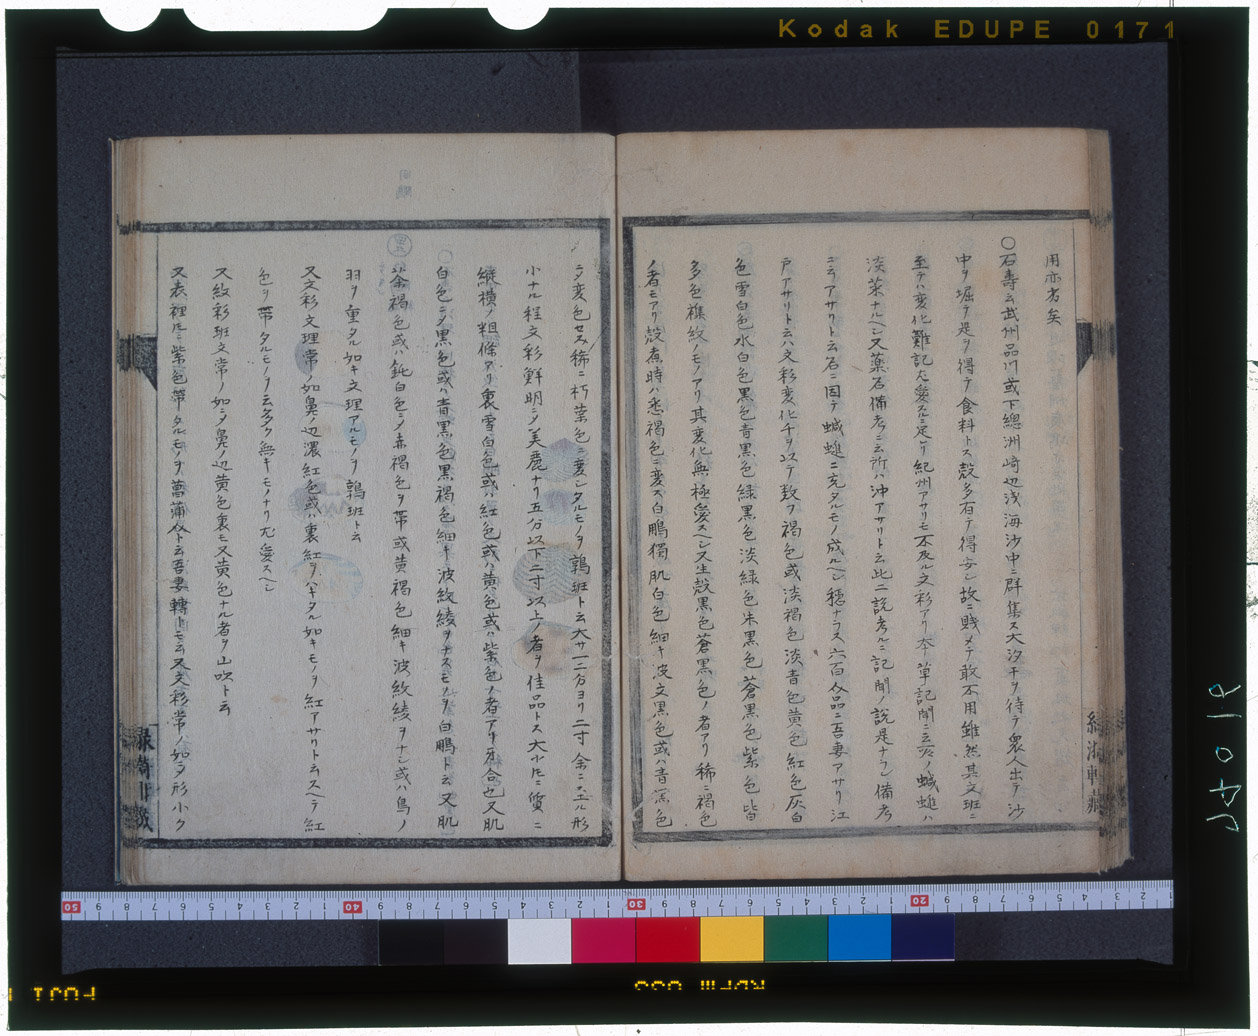 Kodak EDUPE 0171
用亦者矣
〇石壽云武州品川或下總洲崎辺浅海沙中ニ群集ス大汐干ヲ待テ衆人出テ沙
中ヲ堀テ是ヲ得テ食料トス殻多有テ得安シ故ニ賤メテ敢不用雖然其文班ニ
至テハ変化難記尤愛スルニ足リ紀州アサリモ不及ル文彩アリ本草記聞ニ云灰ノ蝛䗯ハ
淡菜ナルヘシ又藥名備考ニ云所ハ沖アサリト云此二説考ルニ記聞ノ説是ナラン備考
ニ云アサリト云石ニ因テ蝛䗯ニ充タルモノ成ルヘシ穏ナラス六百介品ニ吾妻アサリ江
戸アサリト云ハ文彩変化千ヲ以テ数フ褐色或淡褐色淡青色黄色紅色灰白
色雪白色水白色黒色青黒色緑黒色淡緑色朱黒色蒼黒色紫色皆
多色襍紋ノモノアリ其変化無極愛スヘシ又生殻黒色蒼黒色ノ者アリ稀ニ褐色
ノ者モアリ殻煮時ハ悉褐色ニ変ス白鵬獨肌白色細キ波文黒色或ハ青黒色
ニヲ変色セス稀ニ朽葉色ニ変シタルモノヲ鶉班ト云大サ一二分ヨリ二寸余ニ至ル形
小ナル程文彩鮮明ニヲ美麗ナリ五分以下二寸以上ノ者ヲ佳品トス大小トモニ質ニ
縦横ノ粗條アリ裏雪白色或ハ紅色或ハ黄色或ハ紫色ノ者アリ牙合也又肌
白色ニヲ黒色或ハ青黒色黒褐色細キ波紋綾ヲナスモノヲ白鵬ト云又肌
茶褐色或ハ鈍白色ニヲ赤褐色ヲ帯或黄褐色細キ波紋綾ヲナシ或ハ鳥ノ
羽ヲ重タル如キ文理アルモノヲ鶉班ト云
又文彩文理常ノ如鼻ノ辺濃紅色或ハ裏紅ヲハキタル如キモノヲ紅アサリト云スヘテ紅
色ヲ帯タルモノヲ云多ク無キモノナリ尤愛スヘシ
又紋彩班文常ノ如シヲ鼻ノ辺黄色裏モ又黄色ナル者ヲ山吹ト云
又表裡トモニ紫色帯タルモノヲ菖蒲ト云吾妻轉トモ云又文彩常ノ如シヲ形小ク
FUJI